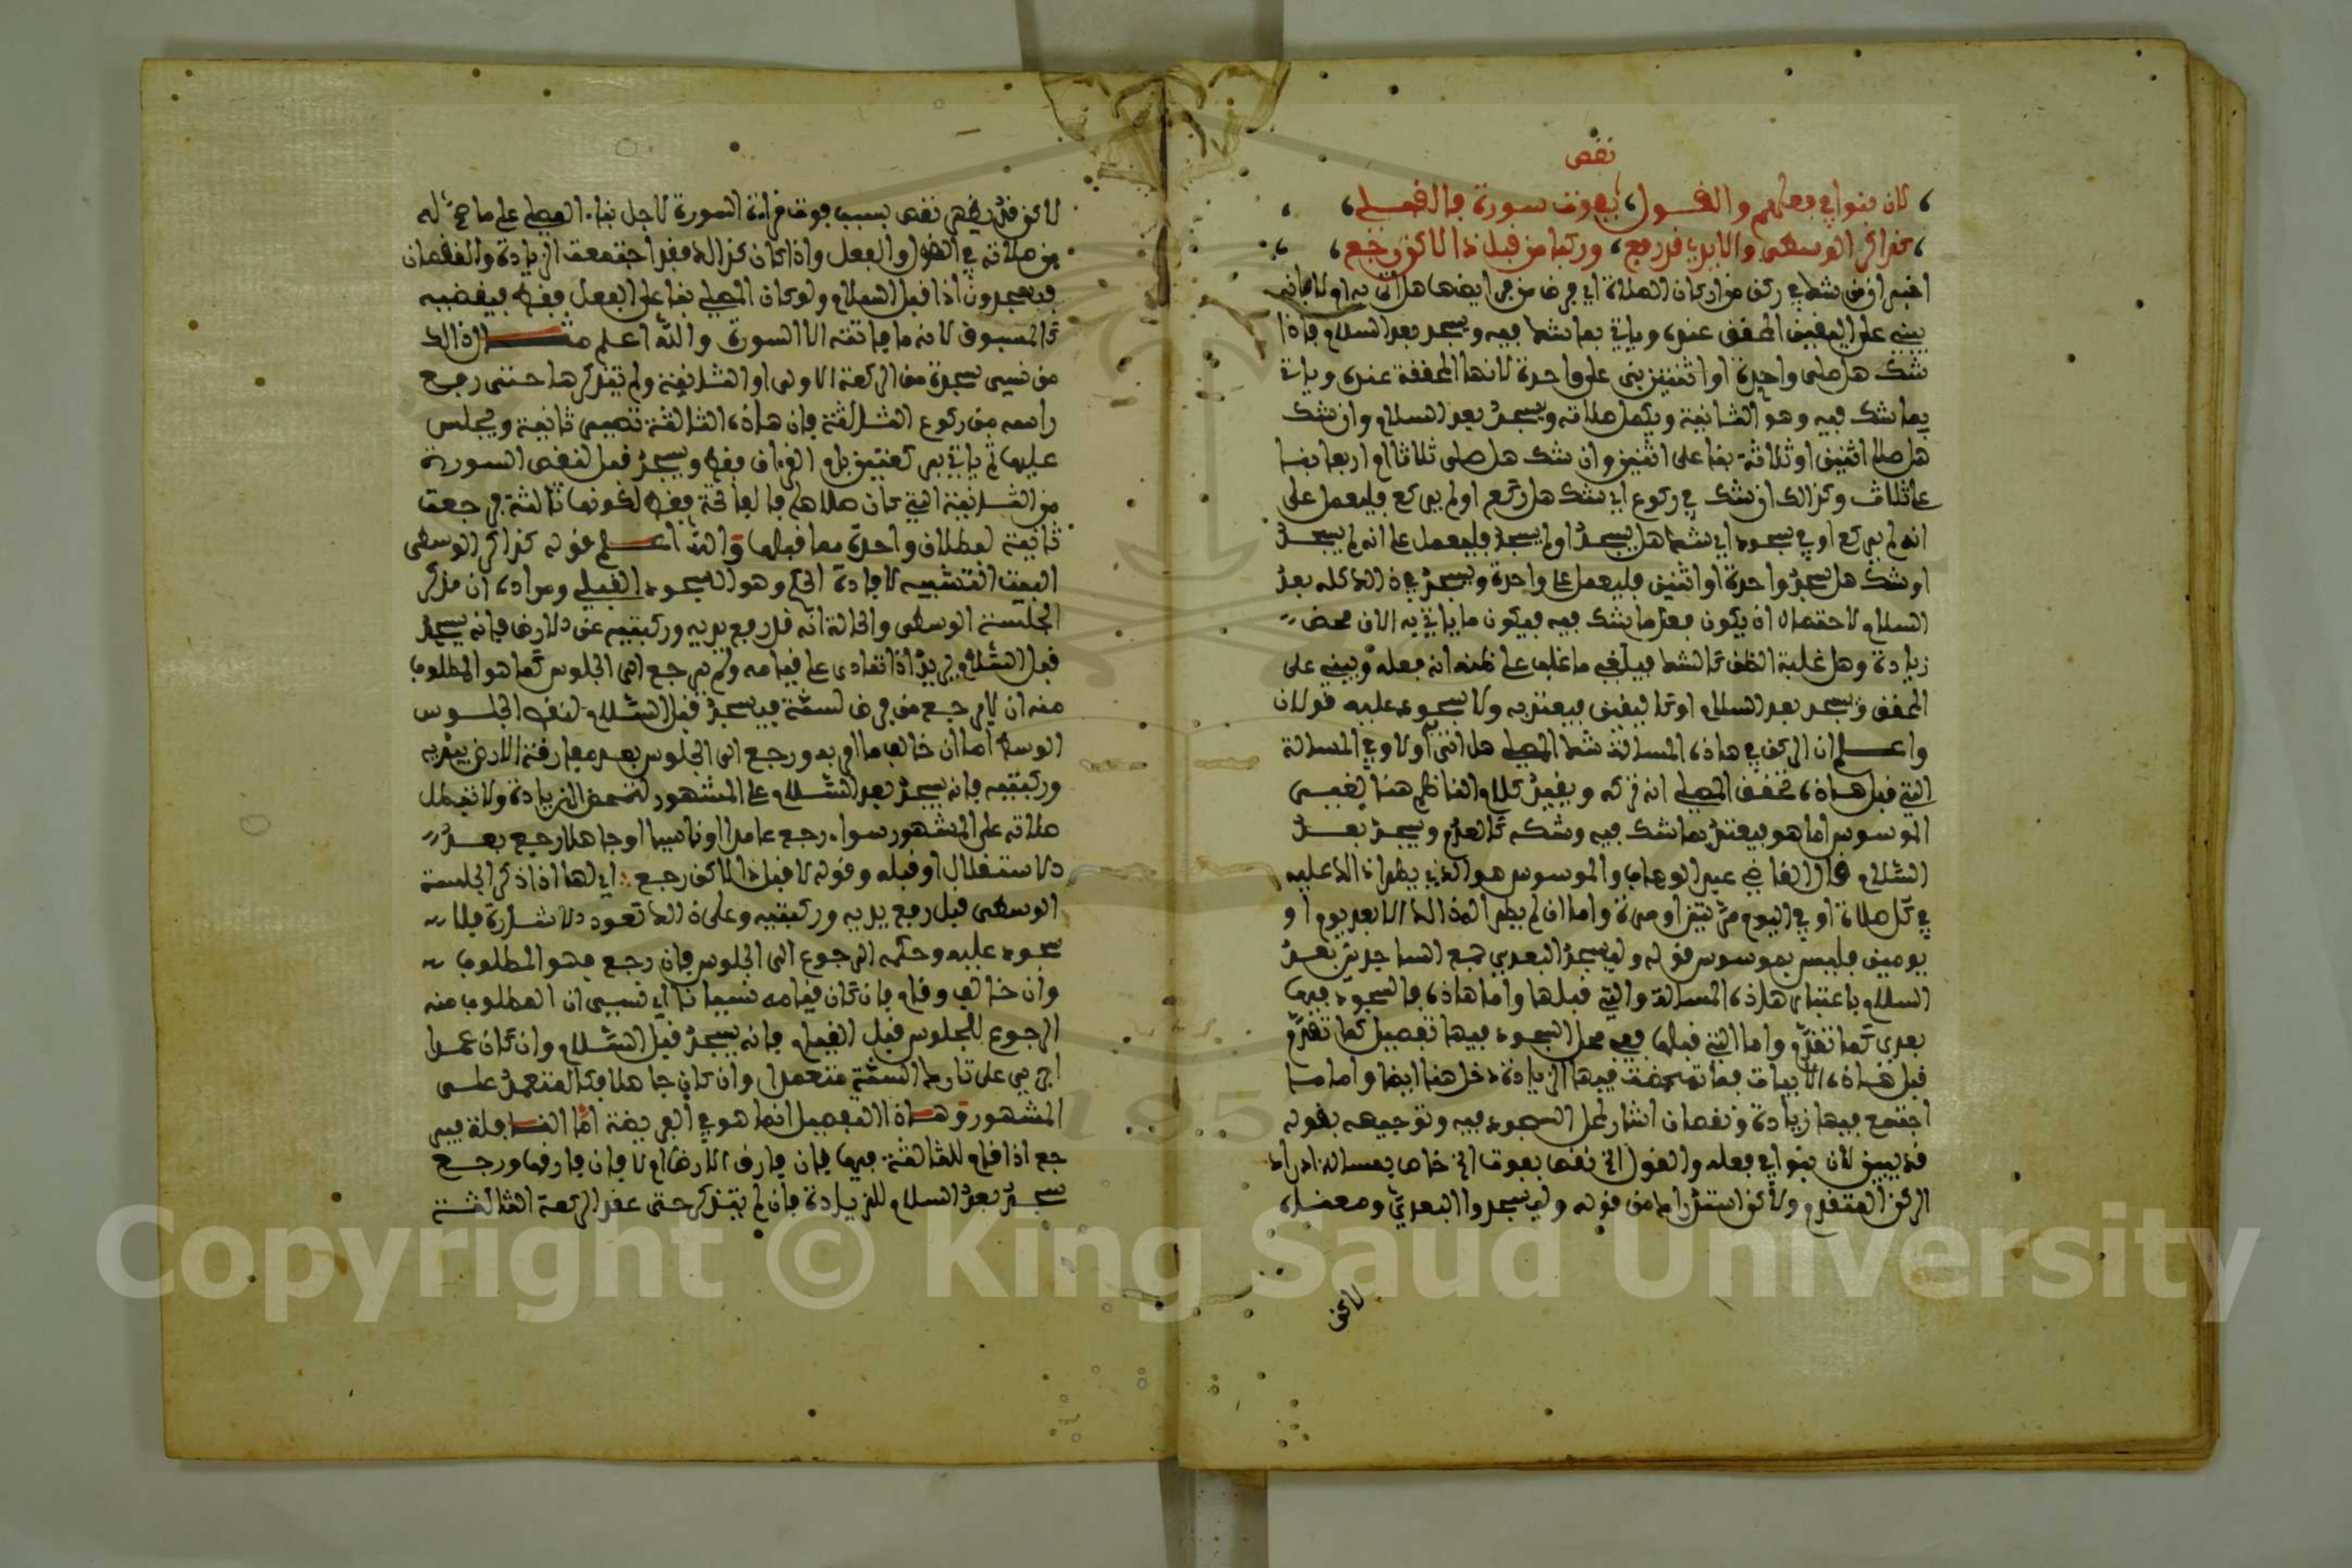 نقص
لان بنوا في فعلهم والقول، بفوت سورة فالقبلي،
كذاكر الوسطى والايدي قد رفع، وركبا من قبل ذا لاكن رجع،
اخبر ان من شك في ركن من اركان الصلاة اي فرض من فرايضها هل اتى به ام لا فانه
يبني على اليقين المحقق عنده وياتي بما شك فيه ويسجد بعد السلام فاذا
شك هل صلى واحدة او اثنتين بنى على واحدة لانها المحققة عنده وياتي
بما شك فيه وهو الثانية ويكمل صلاته ويسجد بعد السلام وان شك
هل صلى اثنين او ثلاثة بنا على اثنين وان شك هل صلى ثلاثا او اربعا بنا
على ثلاث وكذالك ان شك في ركوع اي شك هل ركع او لم يركع فليعمل على
انه لم يركع او في سجود اي شك هل يسجد او لم يسجد فليعمل على انه لم يسجد
او شك هل سجد واحدة او اثنين فليعمل على واحدة ويسجد في ذالك كله بعد
السلام لاحتمال ان يكون فعل ما شك فيه فيكون ما ياتي به الان محض
زيادة وهل غلبة الظن كالشك فيلغي ما غلب على ظنه انه فعله ويبني على
المحقق ويسجد بعد السلام او كاليقين فيعتد به ولا سجود عليه قولان
واعلم ان الركن في هاذه المسالة شك المصلي هل اتى اولا وفي المسالة
التي قبل هاذه تحقق المصلي انه تركه ويقيد كلام الناظم هنا بغير
الموسوس اما هو فيعتد بما شك فيه وشكه كالعدم ويسجد بعد
السلام قال القاضي عبد الوهاب والموسوس هو الذي يطرا ذالك عليه
في كل صلاة او في اليوم مرتين او مرة واما ان لم يطرا له ذالك الا بعد يوم او
يومين فليس بموسوس قوله وليسجد البعدي جمع الساجدين بعد
السلام باعتبار هاذه المسالة والتي قبلها واما هاذه فالسجود فيها
بعدي كما تقدم واما التي قبلها ففي محل السجود فيها تفصيل كما تقدم
قبل هاذه الابيات فما تمحضت فيها الزيادة دخل هنا ايضا واما ما
اجتمع فيها زيادة ونقصان اشار لمحل السجود فيه وتوجيهه بقوله
قد يبين لان بنوا في فعله والقول الخ نقص بفوت الخ خاص بمسالة ادراك
الركن المتقدم ولاكن استدراك من قوله وليسجدوا البعدي ومعناه
لاكن
لاكن قد يظهر نقص بسبب فوت قراءة السورة لاجل بناء المصلي على ما صح له
من صلاته في القول والفعل واذا كان كذالك فقد اجتمعت الزيادة والنقصان
فيسجدون اذا قبل السلام ولو كان المصلي بنا على الفعل فقط فيقضيه
كالمسبوق لانه ما فاتته الا السورة والله اعلم مثال ذالك
من نسي سجدة من الركعة الاولى او الثانية ولم يتذكرها حتى رفع
راسه من ركوع الثالثة فان هاذه الثالثة تصير ثانية ويجلس
عليها ثم ياتي بركعتين بام القرءان فقط ويسجد قبل لنقص السورة
من الثانية التي كان صلاها بالفاتحة فقط لكونها ثالثة فرجعت
ثانية لبطلان واحدة مما قبلها والله اعلم قوله كذاكر الوسطى
البيت التشبيه لافادة الحكم وهو السجود القبلي ومراده ان من ذكر
الجلسة الوسطى والحالة انه قد رفع يديه وركبتيه عن الارض فانه يسجد
قبل السلام يريد اذا تمادى على قيامه ولم يرجع الى الجلوس كما هو المطلوب
منه ان لا يرجع من فرض لسنة فيسجد قبل السلام لنقص الجلوس
الوسط اما ان خالف ما امر به ورجع الى الجلوس بعد مفارقة الارض بيديه
وركبتيه فانه يسجد بعد السلام على المشهور لتمحض الزيادة ولا تبطل
صلاته على المشهور سواء رجع عامدا او ناسيا او جاهلا رجع بعد
الاستقلال او قبله وقوله لا قبل ذا لاكن رجع اي لها اذا ذكر الجلسة
الوسطى قبل رفع يديه وركبتيه وعلى ذالك تعود الاشارة فلا
سجود عليه وحكمه الرجوع الى الجلوس فان رجع فهو المطلوب
وان خالف وقام فان كان قيامه نسيانا اي نسي ان المطلوب منه
الرجوع للجلوس قبل القيام فانه يسجد قبل السلام وان كان عمدا
اجري على تارك السنة متعمدا وان كان جاهلا فكالمتعمد على
المشهور وهاذا التفصيل انما هو في الفريضة اما النافلة فير
جع اذا قام للثالثة فيها فان فارق الارض ام لا فان فارقها ورجع
سجد بعد السلام للزيادة فان لم يتذكر حتى عقد الركعة الثالثة
Copyright © King Saud University